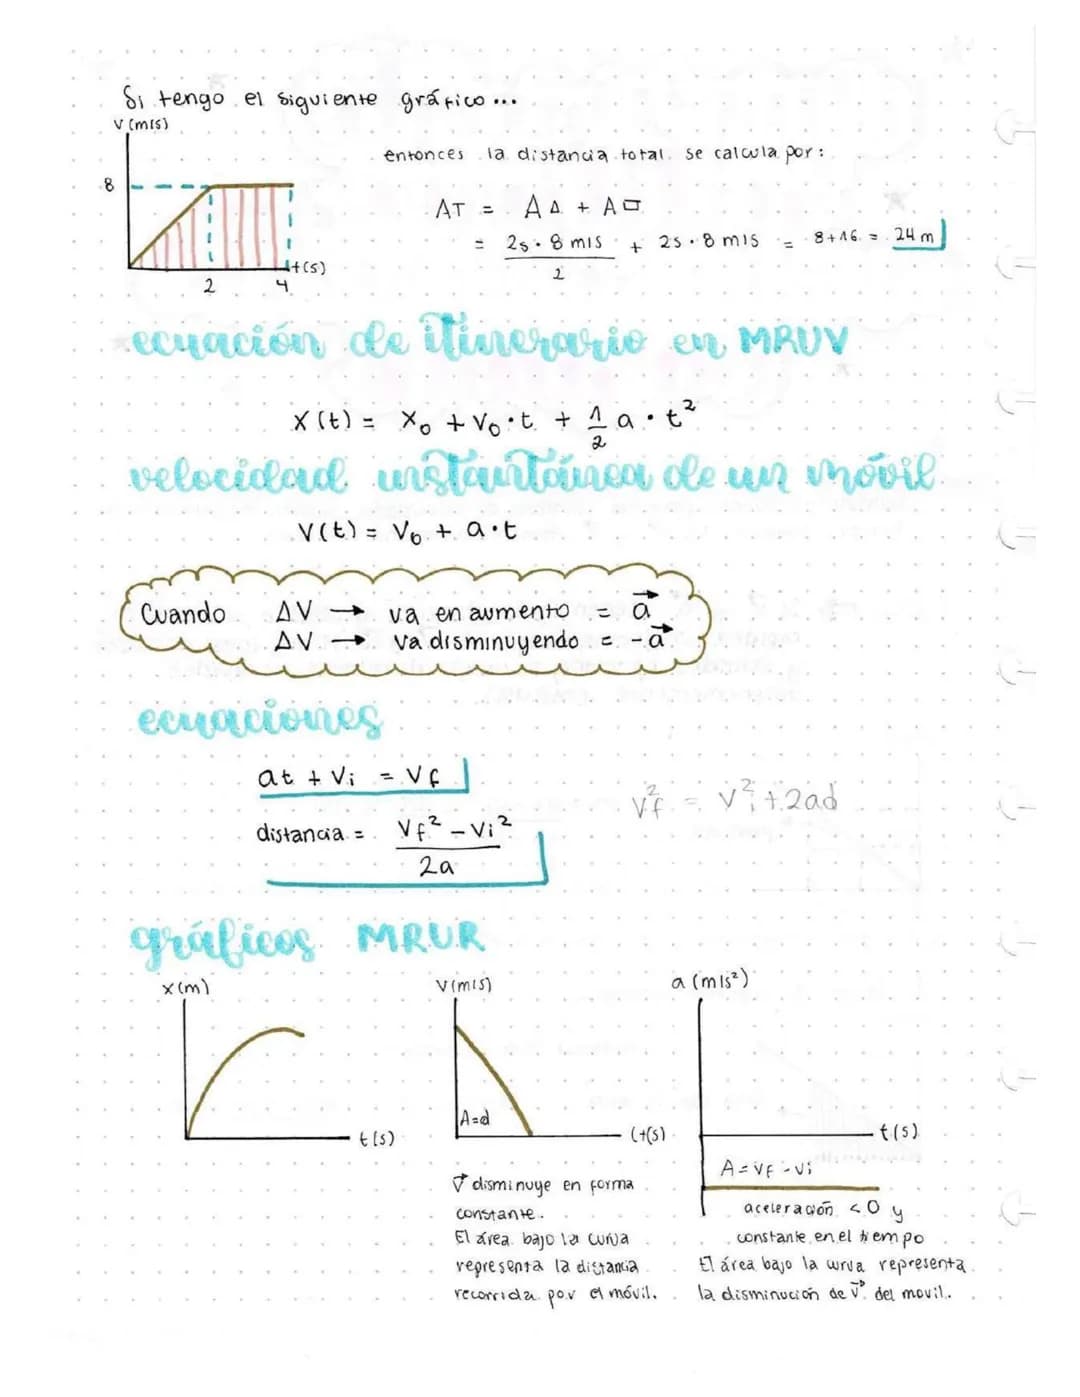 Si tengo el siguiente gráfico...
V (m/s)
entonces la distancia total se calcula por:
8
AT = A△ + A□
= 2s · 8 m/s / 2 + 2s · 8 m/s = 8+16 = 24 m
t(s)
2 4
ecuación de itinerario en MRUV
X(t) = X₀ + V₀·t + 1/2 a · t²
velocidad instantánea de un móvil
V(t) = V₀ + a·t
Cuando ΔV → va en aumento = a⃗
ΔV → va disminuyendo = -a⃗
ecuaciones
at + Vi = Vf
Vf² = Vi² + 2ad
distancia = Vf² - Vi² / 2a
gráficos MRUR
x(m) V(m/s) a (m/s²)
A=d
t(s) (t(s) t(s)
A = Vf - Vi
V⃗ disminuye en forma
constante.
El área bajo la curva
representa la distancia
recorrida por el móvil.
aceleración < 0 y
constante en el tiempo
El área bajo la curva representa
la disminución de V⃗ del movil.